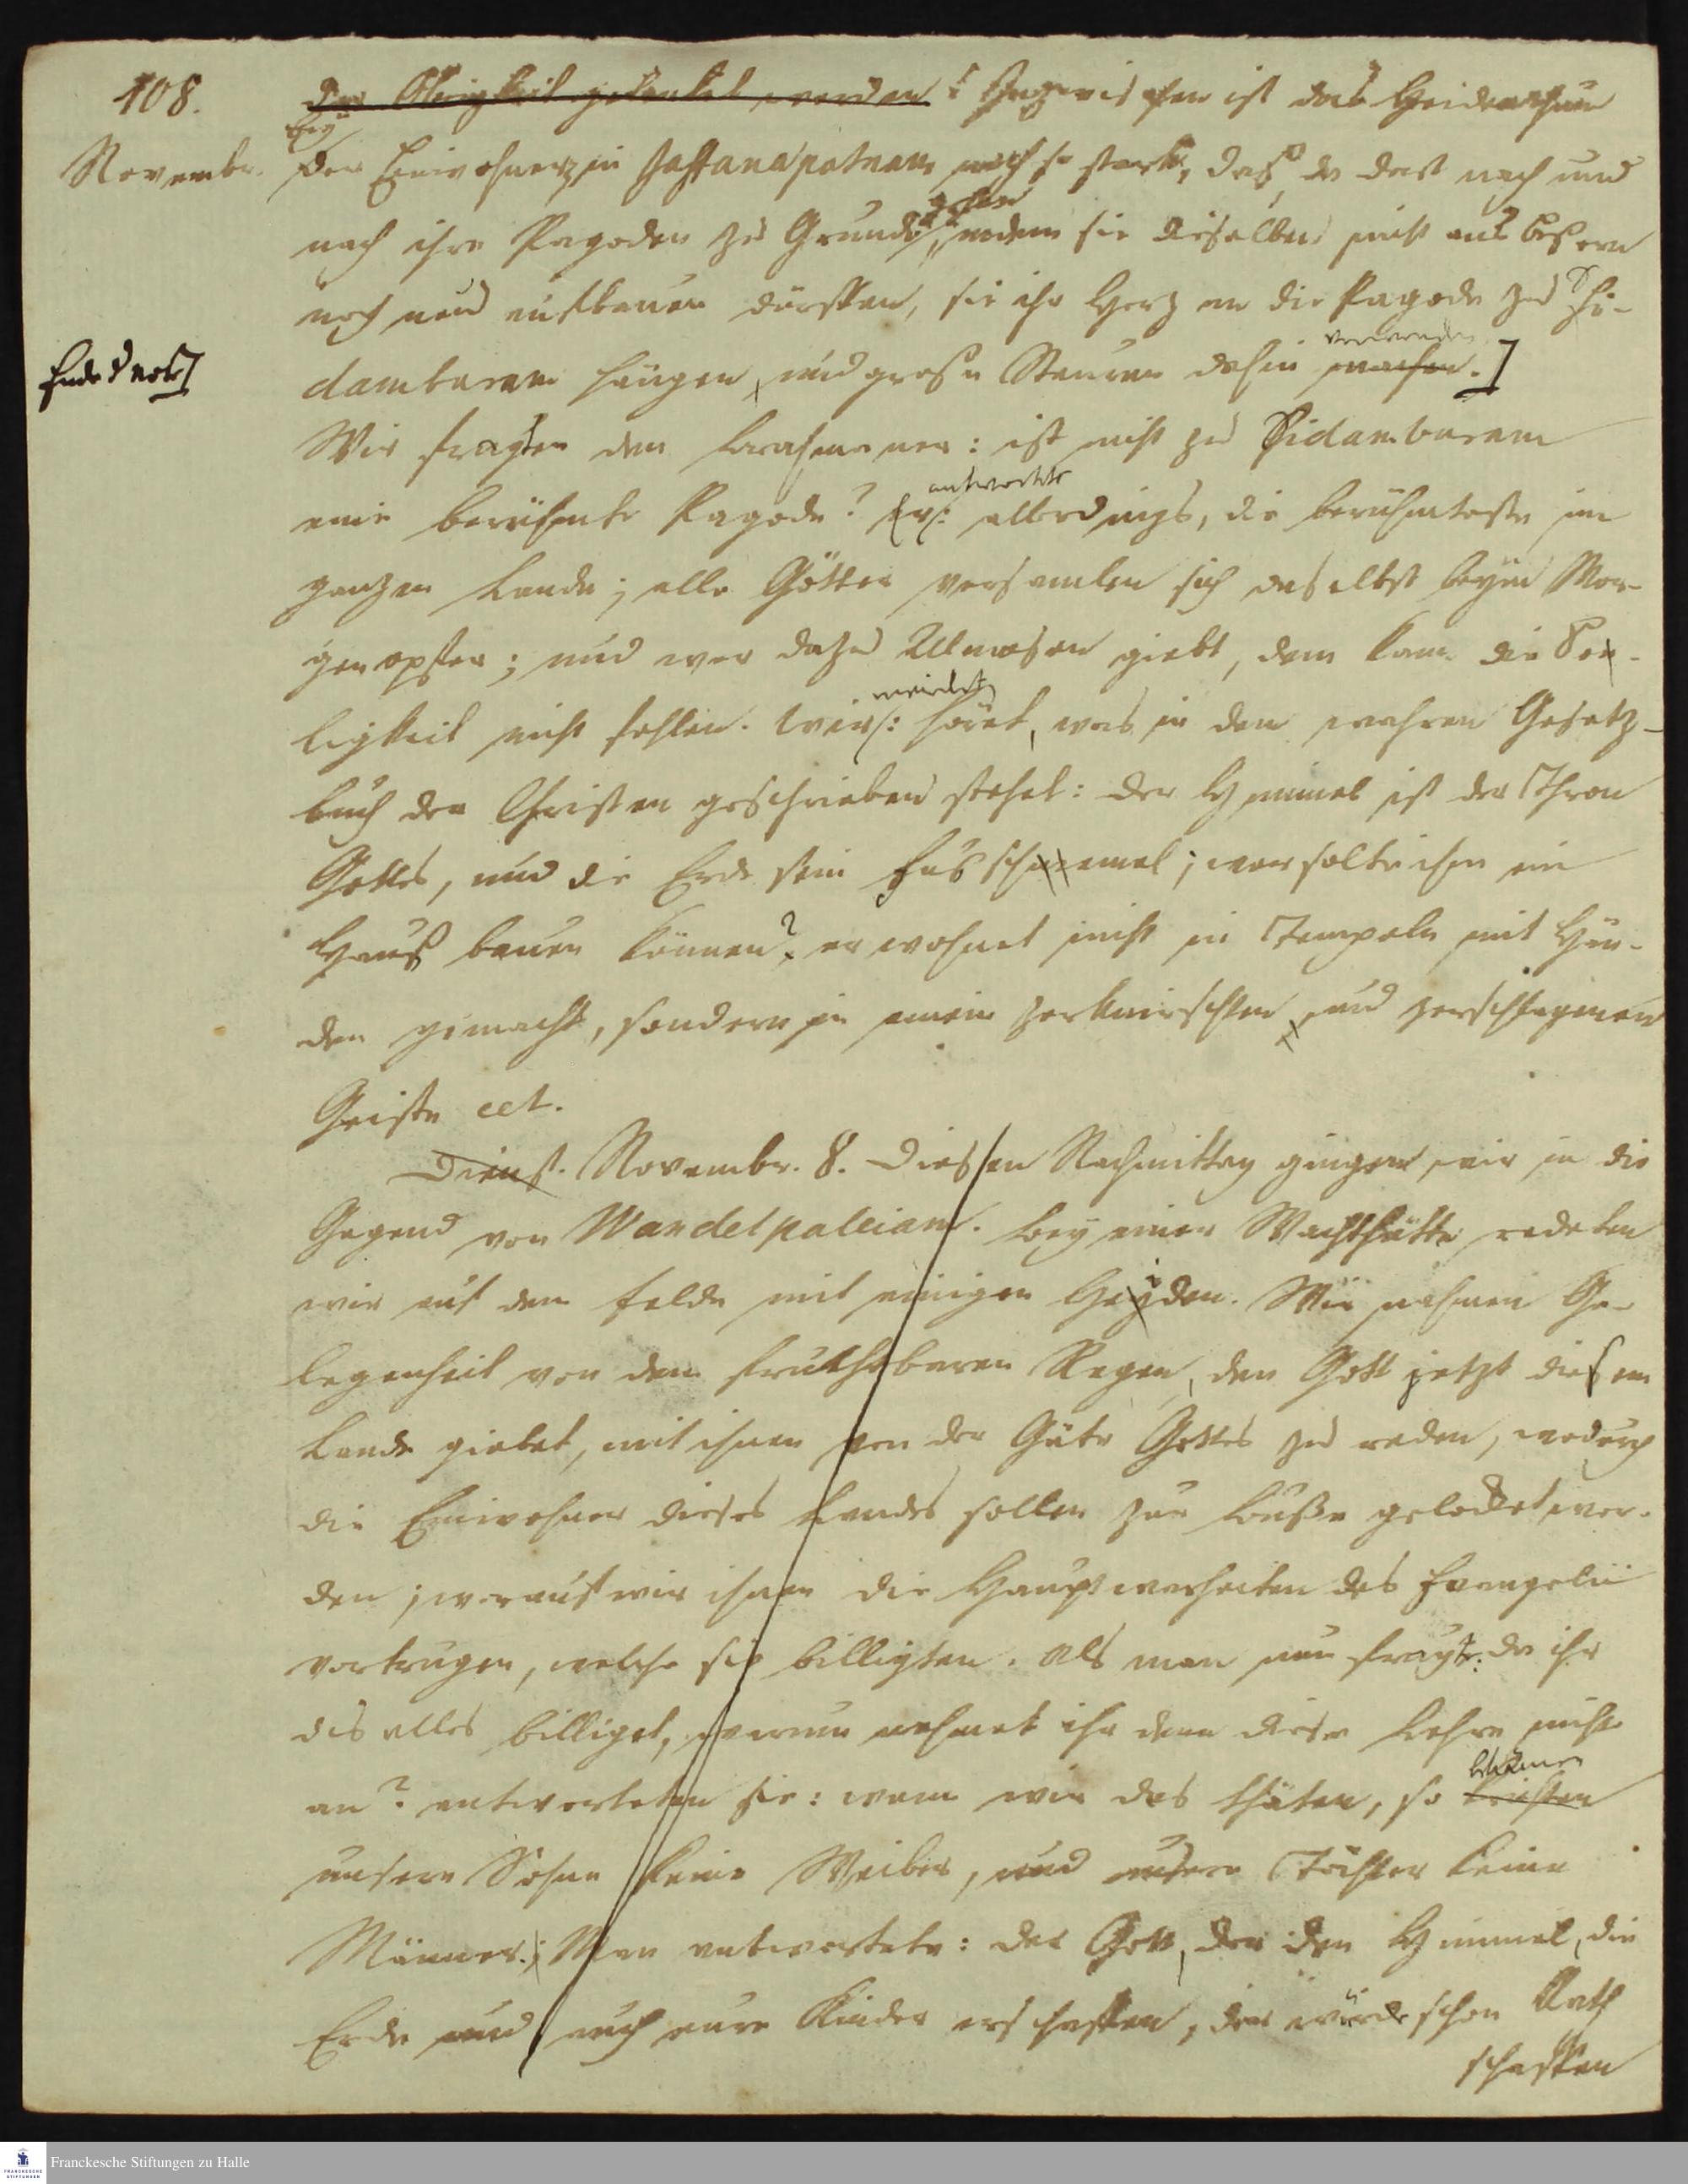 108.
der Obrigkeit gelenket werden [Inzwischen ist das Heidenthum
bey
Novembr.
den Einwohnern in Jaffanapatnam noch so stark, daß, da dort nach und
gehen
nach ihre Pagoden zu Grunde, indem sie dieselben nicht ausbeßern
noch neu aufbauen dürffen, sie ihr Herz an die Pagode zu Schi-
verwenden
Ende d not]
dambaram hängen, und große Steuren dahin machen.]
Wir fragten den Brahmaner: ist nicht zu Sidambaram
antwortete
eine berühmte Pagode? Er: allerdings, die berühmteste im
ganzen Lande; alle Götter versamlen sich daselbst beym Mor-
genopfer; und wer dazu Allmosen giebt, dem kann die See-
ligkeit nicht fehlen. Wir: höret, was in dem wahren Gesetz-
buch der Christen geschrieben stehet: Der Himmel ist der Thron
Gottes, und die Erde sein Fusschemel; wer solte ihm ein
Hauß bauen können? er wohnet nicht in Tempeln mit Hän-
den gemacht, sondern in einem zerknirschten und zerschlagenen
Geiste cet.
Dienst. Novembr. 8. Diesen Nachmittag gingen wir in die
Gegend von Wandelpalleiam. Bey einer Wachthütte redeten
wir auf dem Felde mit einigen Heiden. Wir nahmen Ge-
legenheit von dem fruchtbaren Regen, den Gott jetzt diesem
Lande giebet, mit ihnen von der Güte Gottes zu reden, wodurch
die Einwohner dieses Landes sollen zur Buße gelocket wer-
den; worauf wir ihnen die Hauptwarheiten des Evangelii
vortrugen, welche sie billigten. Als man nun fragte: da ihr
dis alles billiget, warum nehmet ihr denn diese Lehre nicht
bekämen
an? antworteten sie: wenn wir das thäten, so
unsere Söhne keine Weiber, und unsere Töchter keine
Männer. Man antwortete: der Gott, der den Himmel, die
Erde und auch eure Kinder erschaffen, der würde schon Rath
schaffen
Franckesche Stiftungen zu Halle
FRANCKESCHE STIFTUNGEN